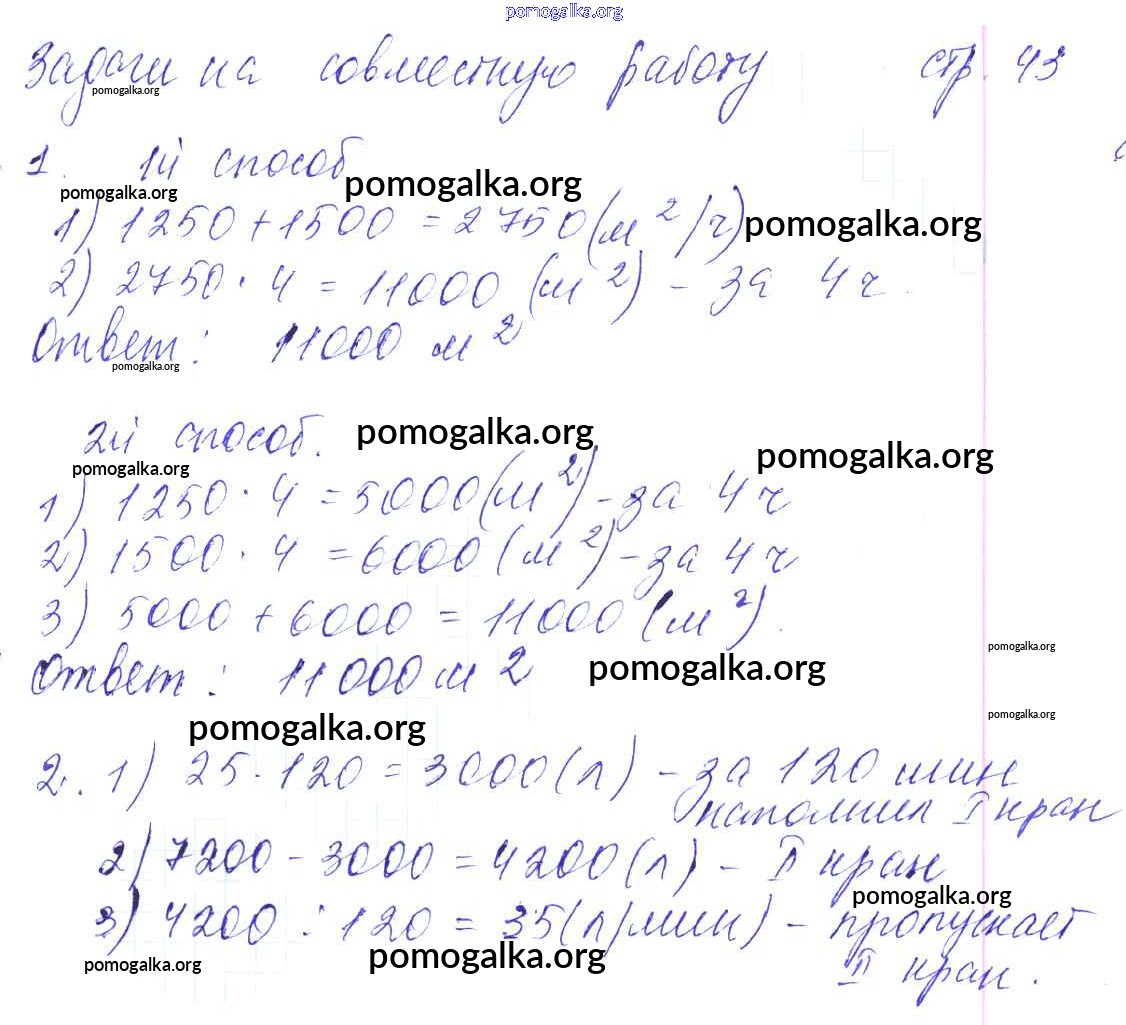 pomogalka.org
Задачи на совместную работу стр. 43
pomogalka.org
1. 1й способ
pomogalka.org pomogalka.org
1) 1250 + 1500 = 2750 (м²/ч) pomogalka.org
2) 2750 · 4 = 11000 (м²) - за 4 ч.
Ответ: 11000 м²
pomogalka.org
2й способ. pomogalka.org
pomogalka.org pomogalka.org
1) 1250 · 4 = 5000 (м²) - за 4 ч
2) 1500 · 4 = 6000 (м²) - за 4 ч
3) 5000 + 6000 = 11000 (м²).
pomogalka.org
Ответ: 11000 м² pomogalka.org
pomogalka.org pomogalka.org
2. 1) 25 · 120 = 3000 (л) - за 120 мин
наполнил I кран
2) 7200 - 3000 = 4200 (л) - II кран
pomogalka.org
3) 4200 : 120 = 35 (л/мин) - пропускает
pomogalka.org pomogalka.org
II кран.